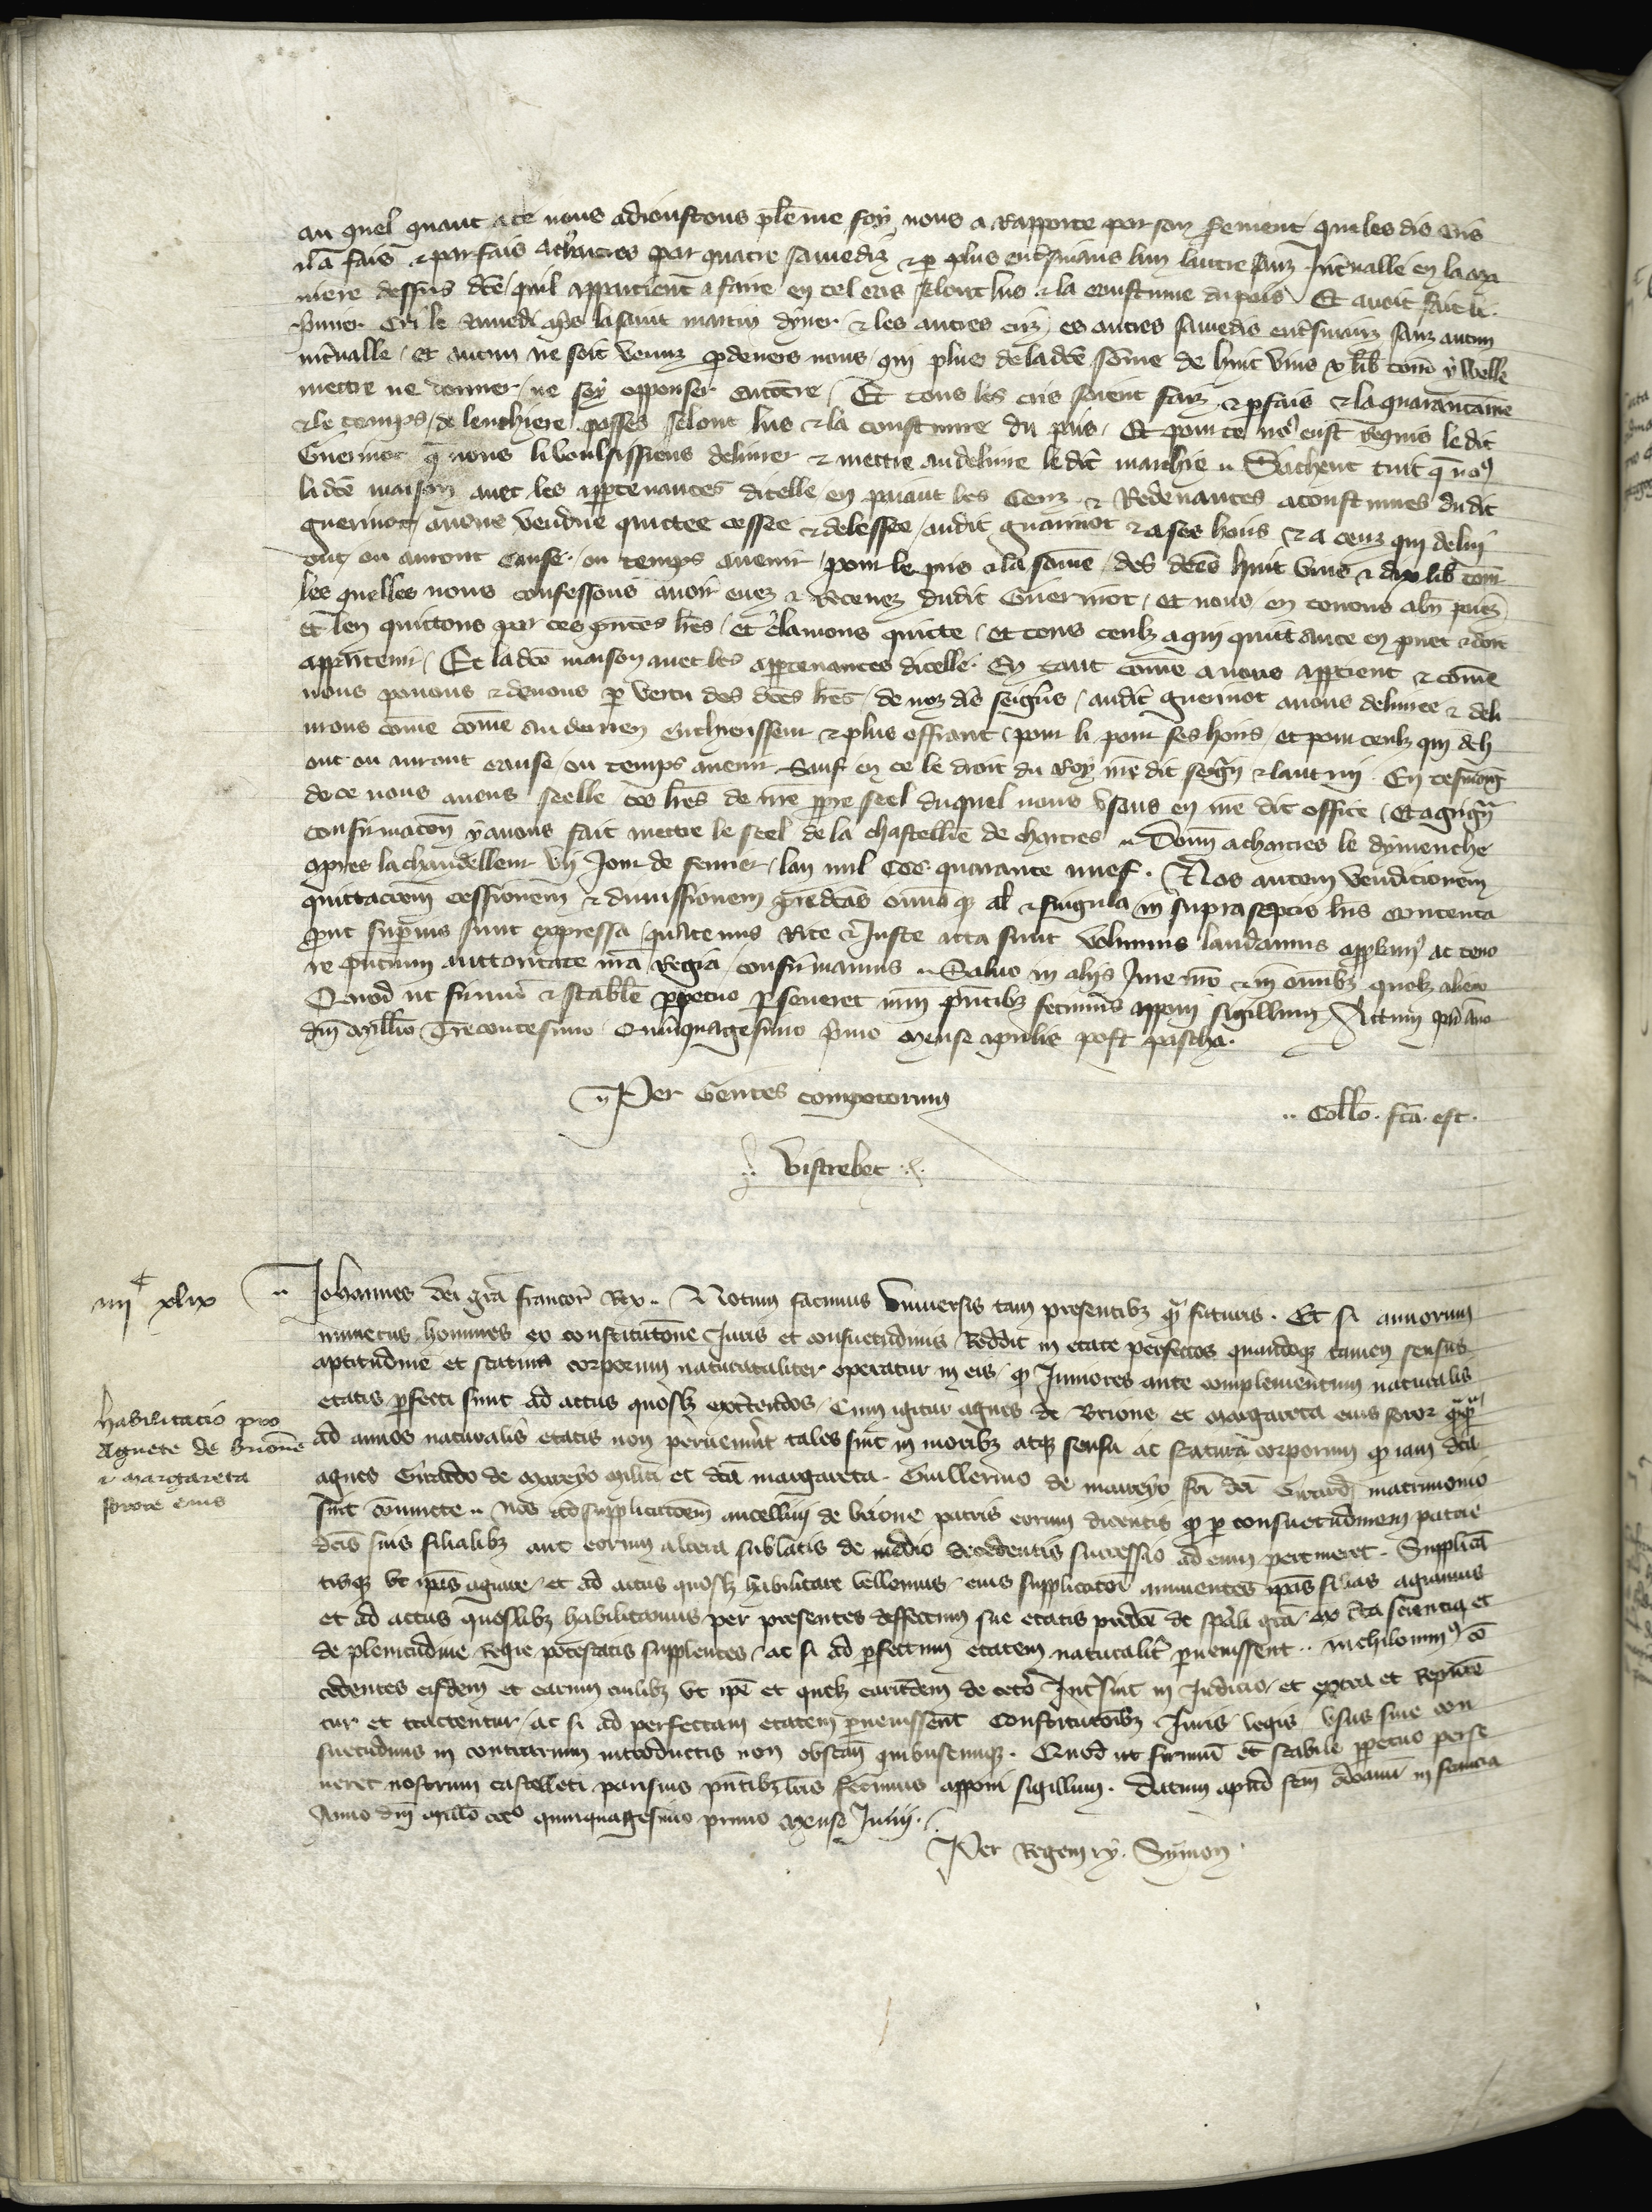 au quel quant a ce nous adioustons plēme foy nous a rapporte par son serment que les dis cris
il a fais & parfais a chartres par quatre samediz & p plus ensuians lun lautre sanz Intualle en la ma
niere dessus dcē quil appartient a faire en tel cas selont lus & la coustume du pais Et auoit fait le
pmier cri le samedi aps la saint martin dyuer & les autres criz es autres samedis ensuianz sanz aucun
intualle et aucun ne soit venuz p deuers nous qui plus de ladcē sōme de huit vins x lib torn y voulle
mettre ne donner ne soy opposer encōtre Et tous les cris soient faiz & pfais & la quarantaine
& le temps de lenchiere passes selont lus & la coustume du pais Et pour ce no9 eust requis le dit
Guerinot q̄ nous li voulsissiens deliurer & mettre au deliure le dit marchie Sachent tuit q̄ no9
ladcē maison auec les apptenances dicelle en paiant les cens & Redeuances acoustumes du dit
guerinot auons vendue quittee cessee & delessee audit guerinot & a ses hoirs & a ceuz qui de lui
ont ou auront cause ou temps auenir pour le pris & la sōme des dcēs huit vins & dix lib torn
les quelles nous confessons auoir euez & Receuez dudit Guerinot et nous en tenons a bn̄ paiez
et len quittons par ces pntes lres et clamons quitte et tous ceulz a qui quittance en puet & doit
appartenir Et ladcē maison auec les apptenances dicelle En tant cōme a nous apptient & cōme
nous pouons & deuons p vertu des dcēs lres de noz dis seigrs audit guerinot auons deliuree & deli
urons cōme cōme au derrien encherisseur & plus offrant pour li pour ses hoirs et pour ceulz qui de li
ont ou auront cause ou temps auenir Sauf en ce le droit du Roy nre dit seigr & lautrui En tesmoig
de ce nous auons seelle ces lres de nre ppre seel duquel nous vsons en nre dit office Et a grigñ
confirmacōn y auons fait mettre le seel de la chastellie de chartres Donn a chartres le dymenche
apres la chandelleur vij Jour de feurier lan mil CCC quarante nuef Nos autem venditionem
quittacōem cessionem & dimissionem predcās omīaq al & singula in suprascptis lris contenta
put supius sunt expressa quatenus Rite & Juste acta sunt volumus laudamus appbam9 ac teno
re pntium auctoritate nra Regia confirmamus Saluo in aliis Jure nro & in omībz quolz alieno
Quod ut firmū & stabile ppetuo pseueret nrm pntibz fecimus apponi sigillum Actum pis anō
dnī Millo Trecentesimo Quinquagesimo pmo Mense aprilis post pascha
Per Gentes compotorum
Collō fcā est
Vistrebec
iiiic xlix
Johannes dei gra francor Rex Notum facimus Vniuersis tam presentibz q̄ futuris Et si annorum
numerus homines ex constitutōne Juris et consuetudinis Reddit in etate perfectos quandoq tamen sensus
aptitudine et statura corporum naturaliter operatur in eis q Juniores ante complementum naturalis
etatis pfecti sunt ad actus quoslz exercendos Cum igitur agnes de Brione et margareta eius soror
ad annos naturalis etatis non peruenīnt tales sint in moribz atq sensu ac statura corporum q iam dcā
agnes Girardo de mareyo militi et dcā margareta Guillermo de mareyo dci Girardi matrimonio
sint cōiuncte Nos ad supplicatōem ancellini de brione patris eorum dicentis q p consuetudinem patrie
dcīs suis filialibz aut eorum altera sublatis de medio decedentis successio ad eum pertineret Supplicā
tisq vt ipas aguare et ad actus quoslz habilitare vellemus eius supplicatōi annuentes ipas filias aguamus
et ad actus quoslibz habilitamus per presentes deffectum sue etatis predcē de spali gra ex cta scientia et
de plenitudine Regie potestatis supplentes ac si ad pfectum etatem naturalit puenissent nichilomin9 cō
cedentes eisdem et earum cuilibz vt ipe et quelz earundem de ceto Int sint in Judicio et extra et Repute
tur et tractentur ac si ad perfectam etatem puenissent Constitutōibz Juris legis vsus siue con
suetudinis in contrarium introductis non obstan quibuscumq Quod ut firmū et stabile ppetuo perse
ueret nostrum castelleti parisius pntibz lris fecimus apponi sigillum Datum apud scm Audoenū in francia
Anno dnī millo ccco quinquagesimo primo Mense Junij
Per Regem Ry Symon
habilitatio pro
Agnete de brione
& margareta
sorore eius